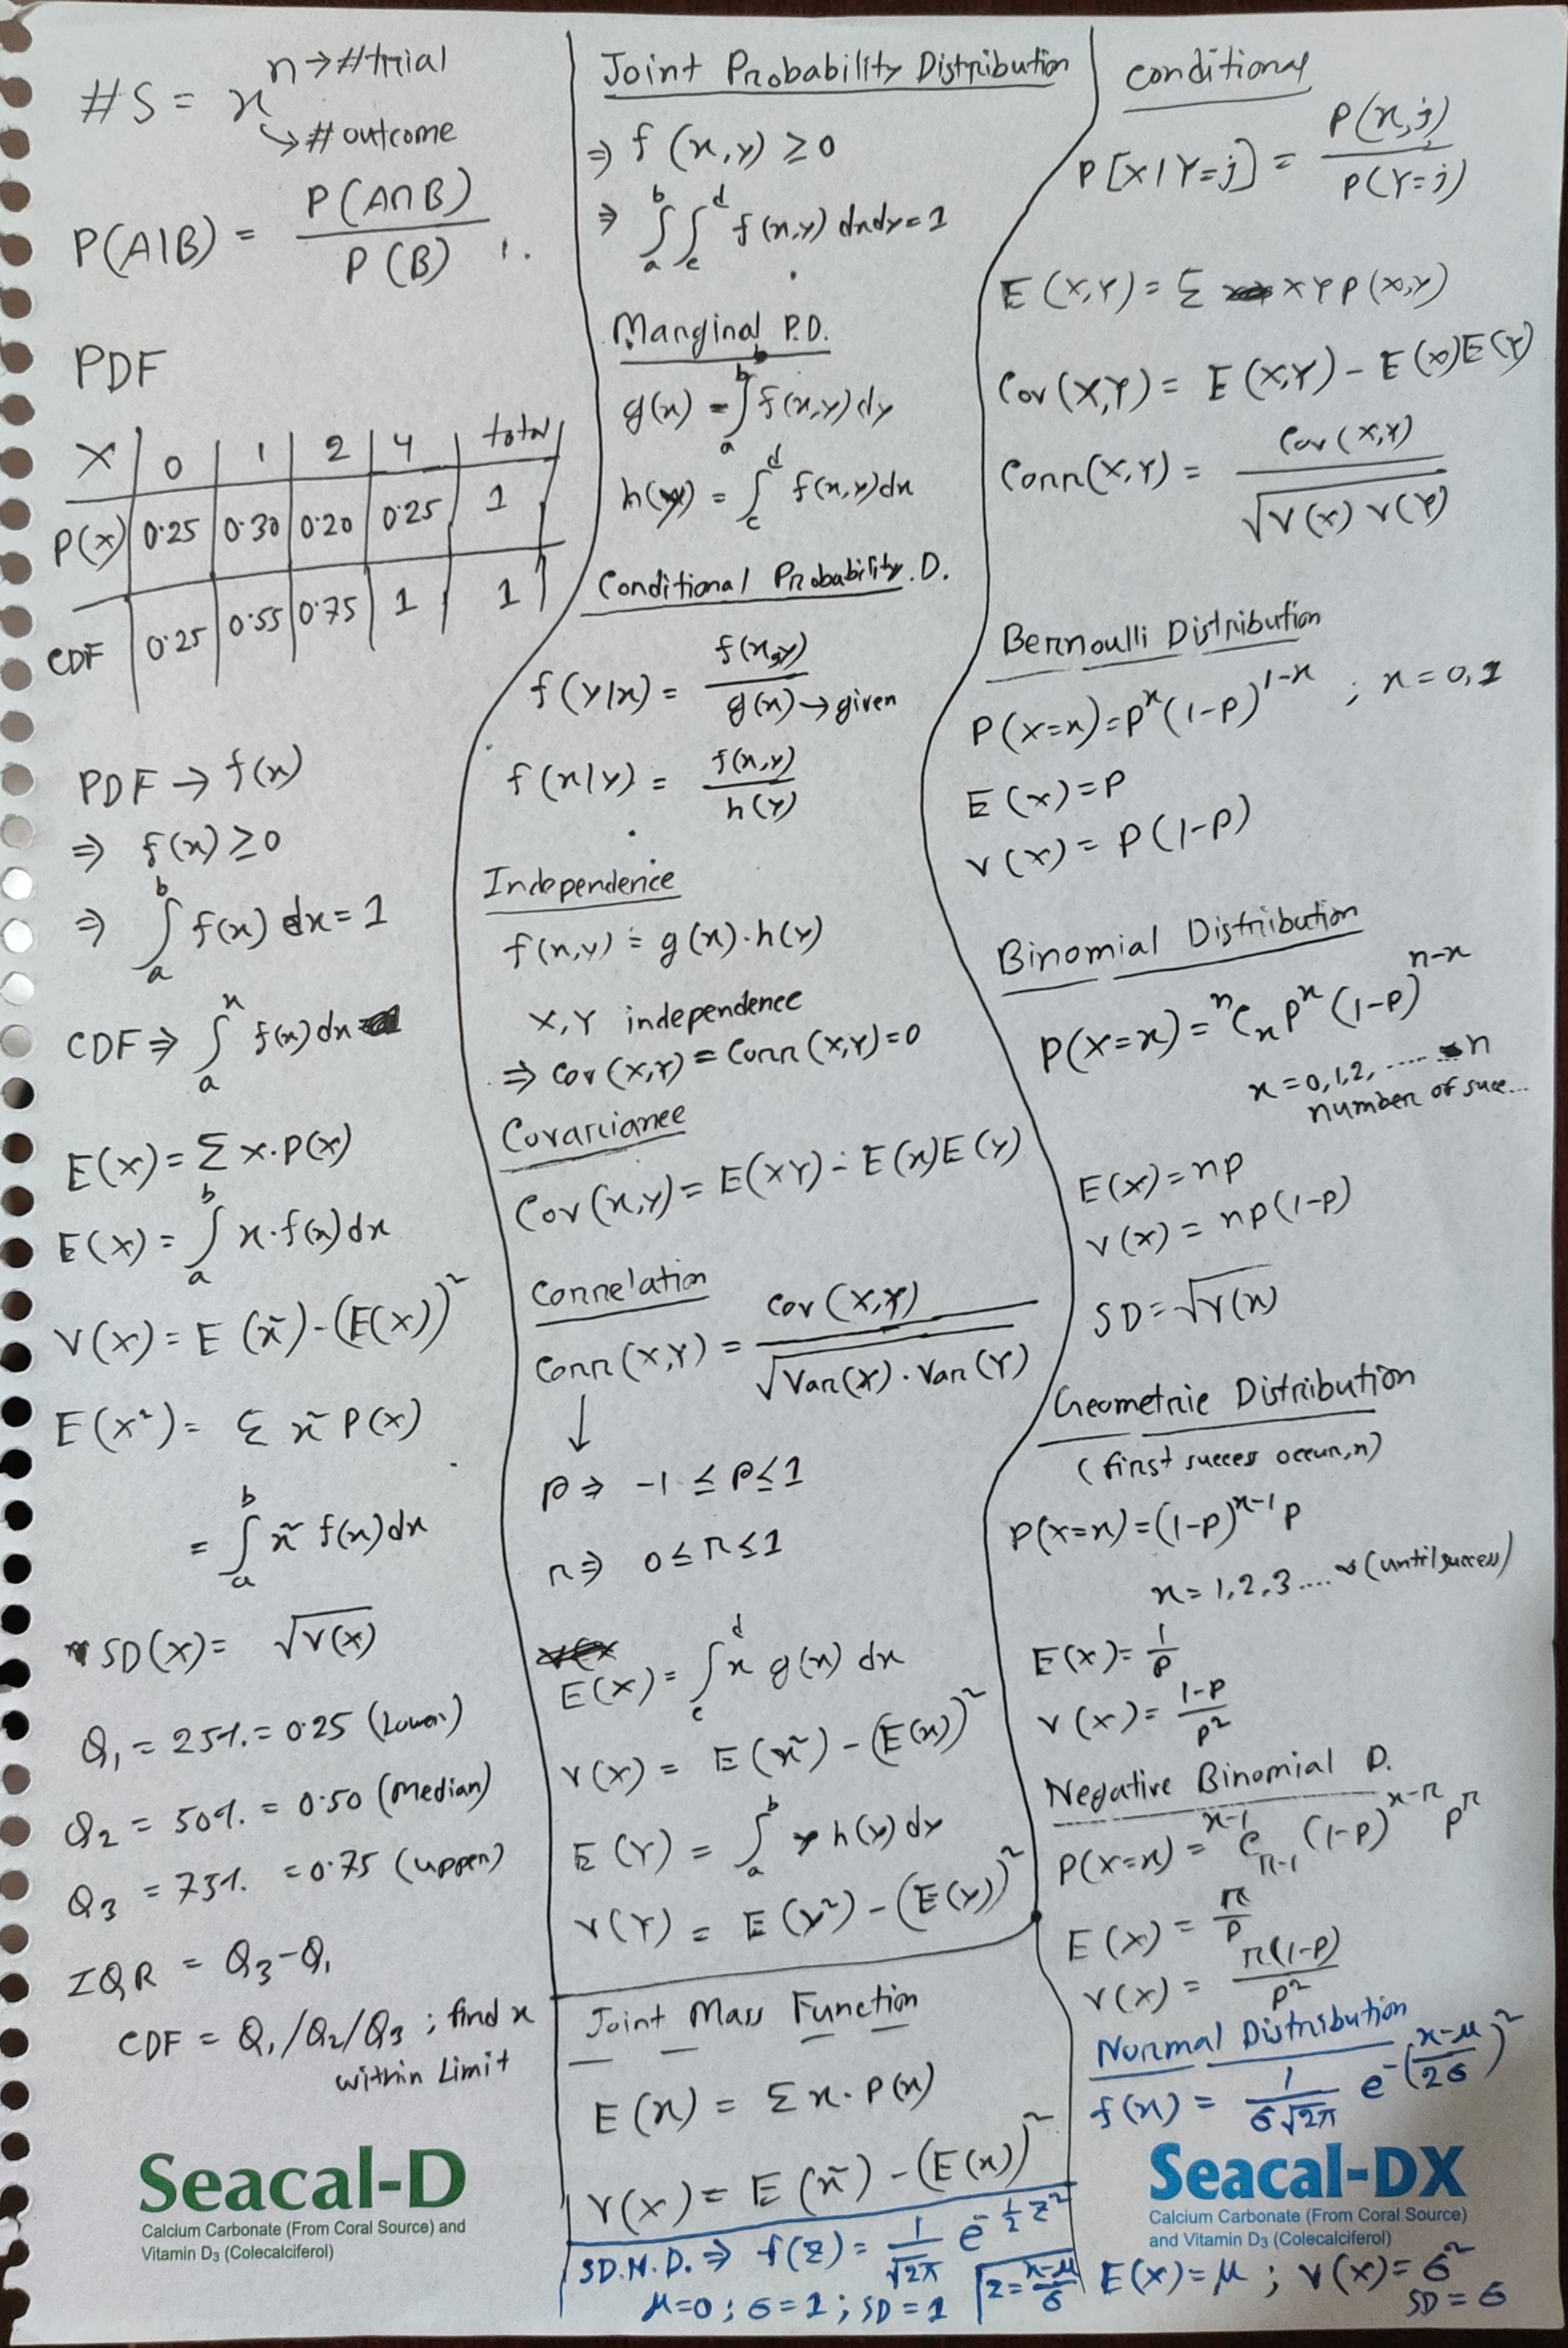 #S = x^n → #trial
↳ # outcome
P(A|B) = P(A∩B) / P(B)
PDF
X | 0 | 1 | 2 | 4 | total
P(x) | 0.25 | 0.30 | 0.20 | 0.25 | 1
CDF | 0.25 | 0.55 | 0.75 | 1 | 1
PDF → f(x)
⇒ f(x) ≥ 0
⇒ ∫_a^b f(x) dx = 1
CDF ⇒ ∫_a^x f(x) dx
E(x) = Σ x·P(x)
E(X) = ∫_a^b x·f(x) dx
V(X) = E(x²) - (E(X))²
E(X²) = Σ x² P(x)
= ∫_a^b x² f(x) dx
SD(X) = √V(x)
Q₁ = 25% = 0.25 (Lower)
Q₂ = 50% = 0.50 (Median)
Q₃ = 75% = 0.75 (upper)
IQR = Q₃-Q₁
CDF = Q₁/Q₂/Q₃ ; find x
within Limit
Seacal-D
Calcium Carbonate (From Coral Source) and
Vitamin D₃ (Colecalciferol)
Joint Probability Distribution
⇒ f(x,y) ≥ 0
⇒ ∫_a^b ∫_c^d f(x,y) dxdy = 1
Marginal P.D.
g(x) = ∫_a^b f(x,y) dy
h(y) = ∫_c^d f(x,y) dx
Conditional Probability. D.
f(y|x) = f(x,y) / g(x) → given
f(x|y) = f(x,y) / h(y)
Independence
f(x,y) = g(x)·h(y)
X,Y independence
⇒ Cov(X,Y) = Corr(X,Y) = 0
Covariance
Cov(x,y) = E(XY) - E(x)E(y)
Correlation
Corr(X,Y) = Cov(X,Y) / √Var(X)·Var(Y)
↓
ρ ⇒ -1 ≤ ρ ≤ 1
r ⇒ 0 ≤ r ≤ 1
E(X) = ∫_c^d x g(x) dx
V(X) = E(x²) - (E(x))²
E(Y) = ∫_a^b y h(y) dy
V(Y) = E(y²) - (E(y))²
Joint Mass Function
E(x) = Σ x·P(x)
V(x) = E(x²) - (E(x))²
SD.N.D. ⇒ f(z) = 1/√2π e^(-½ z²)
μ=0 ; σ=1 ; SD=1
z = x-μ / σ
conditional
P[X|Y=j] = P(x,j) / P(Y=j)
E(X,Y) = Σ XY P(x,y)
Cov(X,Y) = E(X,Y) - E(x)E(Y)
Corr(X,Y) = Cov(X,Y) / √V(x) V(Y)
Bernoulli Distribution
P(X=x) = p^x (1-p)^(1-x) ; x = 0,1
E(x) = P
V(x) = P(1-P)
Binomial Distribution
P(X=x) = ⁿCₓ p^x (1-p)^(n-x)
x = 0,1,2, ..... n
number of succ...
E(x) = np
V(x) = np(1-p)
SD = √V(x)
Geometric Distribution
(first succes occur, x)
P(X=x) = (1-p)^(x-1) p
x = 1,2,3.... ∞ (until success)
E(x) = 1/p
V(x) = 1-p / p²
Negative Binomial D.
P(X=x) = ^(x-1)C_(r-1) (1-p)^(x-r) p^r
E(X) = r/p
V(x) = r(1-p) / p²
Normal Distribution
f(x) = 1/σ√2π e^-(x-μ / 2σ)²
Seacal-DX
Calcium Carbonate (From Coral Source)
and Vitamin D₃ (Colecalciferol)
E(x) = μ ; V(x) = σ²
SD = σ